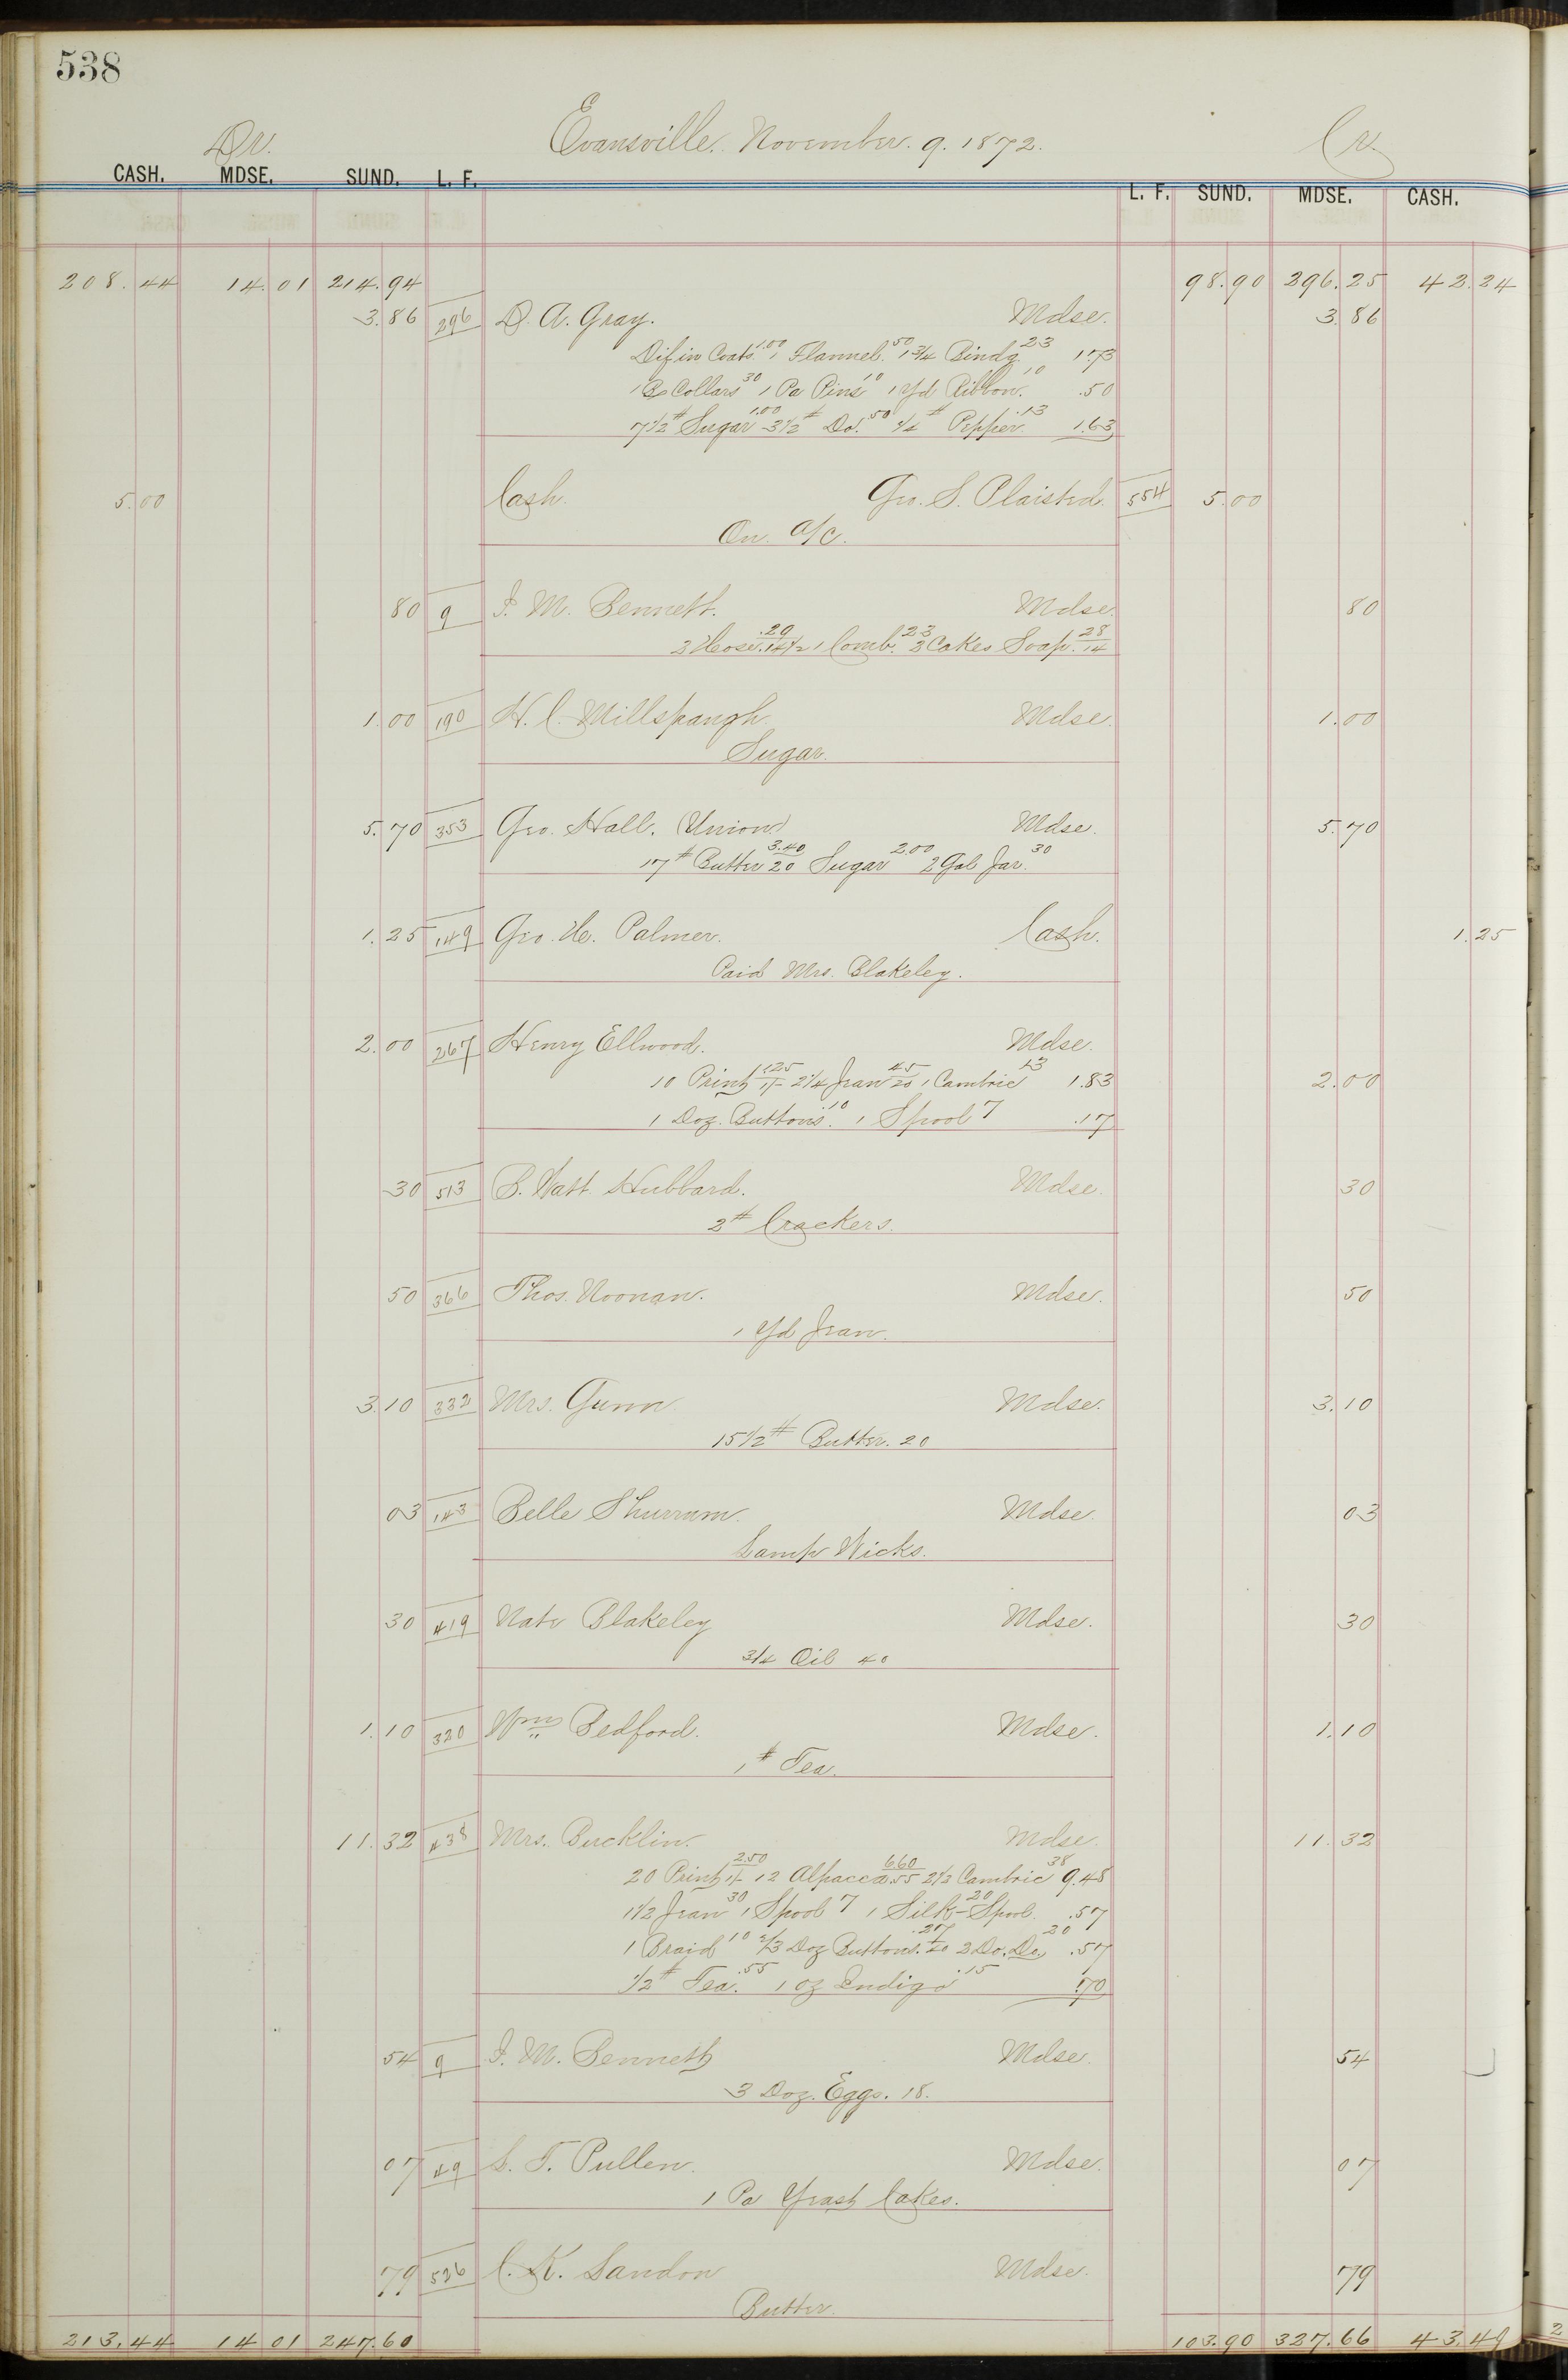 538
Dr. Evansville. November. 9. 1872. Cr.
CASH. MDSE. SUND. L. F. L. F. SUND. MDSE. CASH.
208.44 14.01 214.94 98.90 296.25 42.24
3.86 296 D. A. Gray. Mdse. 3.86
Dif in Coats. 1.00 1 Flannel. 50 1 3/4 Bindg. 23 1.73
1 Bx Collars 30 1 Pa Pins 10 1 Yd Ribbon. 10 .50
7 1/2 # Sugar 1.00 3 1/2 # Do. 50 1/4 # Pepper .13 1.63
5.00 Cash. Geo. S. Plaisted. 554 5.00
On. a/c.
80 9 I. M. Bennett. Mdse. 80
2 Hose. .29 14 1/2 1 Comb. 23 2 Cakes Soap. 28 14
1.00 190 H. C. Millspaugh. Mdse. 1.00
Sugar.
5.70 353 Geo. Hall. (Union) Mdse. 5.70
17 # Butter 3.40 20 Sugar 2.00 2 Gal Jar. 30
1.25 149 Geo. H. Palmer. Cash. 1.25
Paid Mrs. Blakeley.
2.00 267 Henry Ellwood. Mdse.
10 Print 1.25 1/- 2 1/4 Jean 45 20 1 Cambric 13 1.83 2.00
1 Doz. Buttons. .10 1 Spool 7 .17
30 513 B. Watt. Hubbard. Mdse. 30
2 # Crackers.
50 366 Thos. Noonan. Mdse. 50
1 Yd Jean.
3.10 332 Mrs. Gunn. Mdse. 3.10
15 1/2 # Butter. 20
03 143 Belle Shurrum. Mdse. 03
Lamp Wicks.
30 419 Nate Blakeley Mdse. 30
3/4 Oil 40
1.10 320 Wm Bedford. Mdse. 1.10
1 # Tea.
11.32 438 Mrs. Bucklin. Mdse. 11.32
20 Print 2.50 1/- 12 Alpacca 6.60 .55 2 1/2 Cambric 38 9.48
1 1/2 Jean 30 1 Spool 7 1 Silk-Spool 20 .57
1 Braid 10 Doz Buttons. .27 20 2 Do. Do. 20 .57
1/2 # Tea. .55 1 oz Indigo .15 .70
54 9 I. M. Bennett Mdse. 54
3 Doz. Eggs. 18.
07 49 L. T. Pullen. Mdse. 07
1 Pa Yeast Cakes.
79 526 C. K. Landon Mdse. 79
Butter.
213.44 14 01 247.60 103.90 327.66 43.49